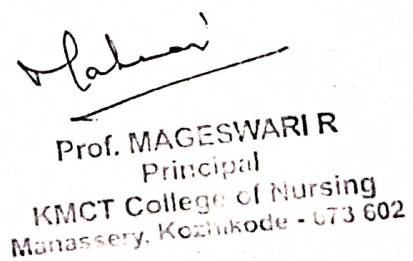 Prof. MAGESWARI R
Principal
KMCT College of Nursing
Manassery, Kozhikode - 673 602